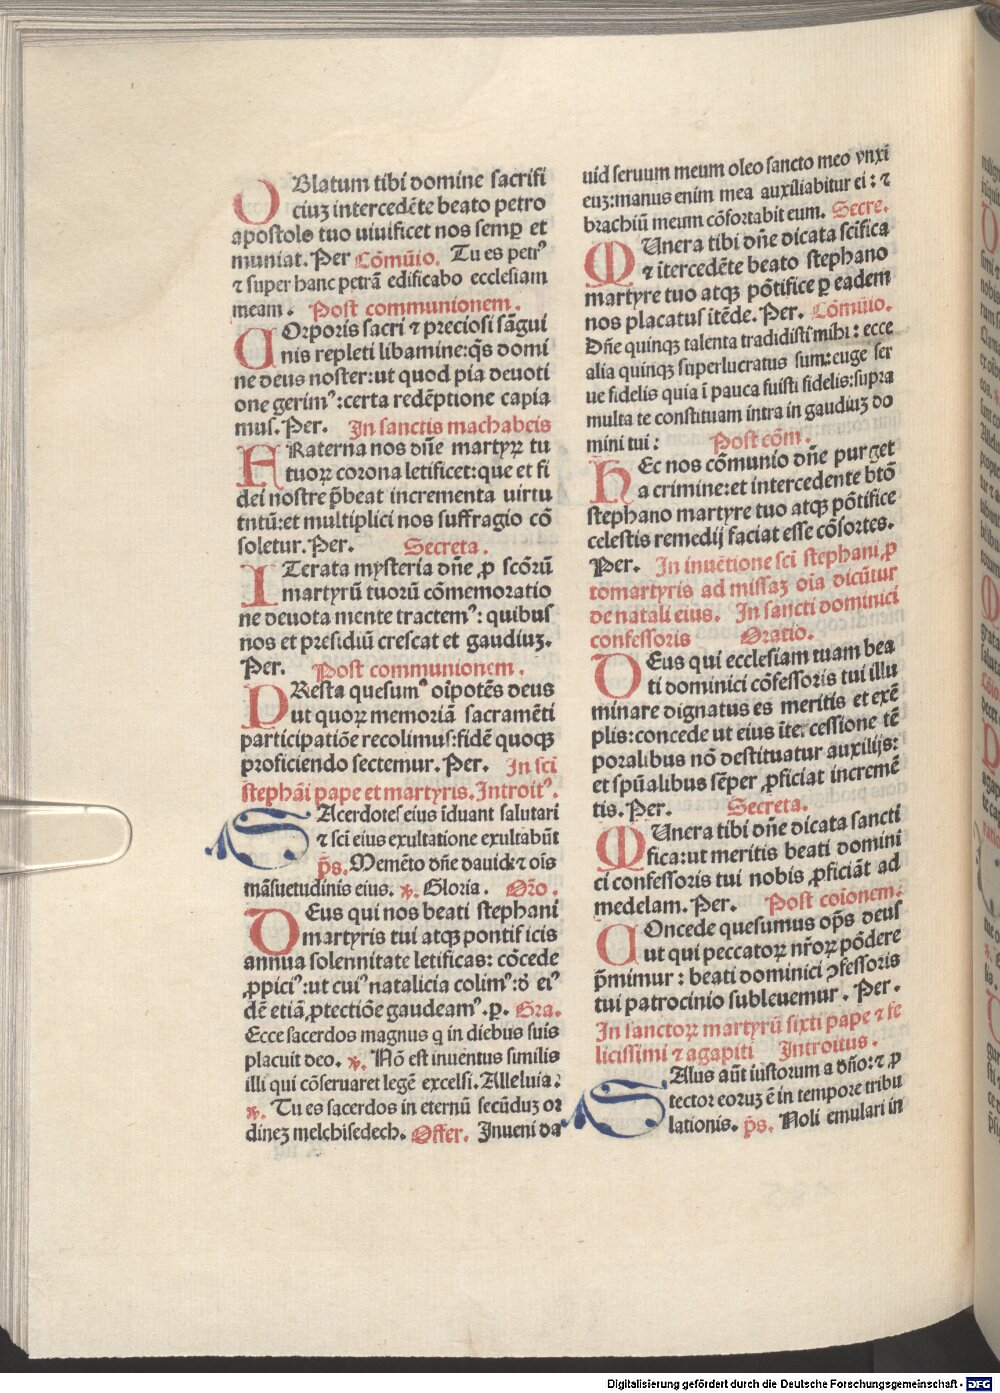 OBlatum tibi domine sacrifi
ciuꝫ intercedẽte beato petro
apostolo tuo uiuificet nos semꝑ et
muniat. Per Cõmũio. Tu es petrꝰ
⁊ super hanc petrã edificabo ecclesiam
meam. Post communionem.
COrporis sacri ⁊ preciosi sãgui
nis repleti libamine:q̃s domi
ne deus noster:ut quod pia deuoti
one gerimꝰ:certa redẽptione capia
mus. Per. In sanctis machabeis
FRaterna nos dñe martyrꝝ tu
tuoꝝ corona letificet:que et fi
dei nostre p̃beat incrementa uirtu
tntũ:et multiplici nos suffragio cõ
soletur. Per. Secreta.
ITerata mysteria dñe ꝓ scõrũ
martyrũ tuorũ cõmemoratio
ne deuota mente tractemꝰ: quibus
nos et presidiũ crescat et gaudiuꝫ.
Per. Post communionem.
PResta quesumꝰ oipotẽs deus
ut quoꝝ memoriã sacramẽti
participatiõe recolimus:fidẽ quoqꝫ
proficiendo sectemur. Per. In sci
stephãi pape et martyris. Introitꝰ.
SAcerdotes eius ĩduant salutari
⁊ sci eius exultatione exultabũt
p̃s. Memẽto dñe dauid:⁊ oĩs
mãsuetudinis eius. ℣. Gloria. Oro.
DEus qui nos beati stephani
martyris tui atqꝫ pontificis
annua solennitate letificas: cõcede
ꝓpiciꝰ:ut cuiꝰ natalicia colimꝰ:d̃ eiꝰ
dẽ etiã ꝓtectiõe gaudeamꝰ. ꝑ. Gra.
Ecce sacerdos magnus q in diebus suis
placuit deo. ℣. Nõ est inuentus similis
illi qui cõseruaret legẽ excelsi. Alleluia:
℣. Tu es sacerdos in eternũ secũduꝫ or
dineꝫ melchisedech. Offer. Inueni da
uid seruum meum oleo sancto meo vnxi
euꝫ:manus enim mea auxiliabitur ei: ⁊
brachiũ meum cõfortabit eum. Secre.
MUnera tibi dñe dicata scifica
⁊ ĩtercedẽte beato stephano
martyre tuo atqꝫ põtifice ꝑ eadem
nos placatus itẽde. Per. Cõmũio.
Dñe quinqꝫ talenta tradidisti mihi: ecce
alia quinqꝫ superlucratus sum:euge ser
ue fidelis quia ĩ pauca fuisti fidelis:supra
multa te constituam intra in gaudiuꝫ do
mini tui: Post cõm.
HEc nos cõmunio dñe purget
a crimine:et intercedente btõ
stephano martyre tuo atqꝫ põtifice
celestis remedij faciat esse cõsortes.
Per. In inuẽtione sci stephani ꝓ
tomartyris ad missaꝫ oĩa dicũtur
de natali eius. In sancti dominici
confessoris Oratio.
DEus qui ecclesiam tuam bea
ti dominici cõfessoris tui illu
minare dignatus es meritis et exẽ
plis:concede ut eius ĩtercessione tẽ
poralibus nõ destituatur auxilijs:
et spũalibus sẽper ꝓficiat incremẽ
tis. Per. Secreta.
MUnera tibi dñe dicata sancti
fica:ut meritis beati domini
ci confessoris tui nobis ꝓficiãt ad
medelam. Per. Post coionem.
COncede quesumus op̃s deus
ut qui peccatoꝝ nr̃oꝝ põdere
p̃mimur: beati dominici ꝯfessoris
tui patrocinio subleuemur. Per.
In sanctoꝝ martyrũ sixti pape ⁊ fe
licissimi ⁊ agapiti Introitus.
SAlus aũt iustorum a dño:⁊ ꝓ
tector eoruꝫ ẽ in tempore tribu
lationis. p̃s. Noli emulari in
Digitalisierung gefördert durch die Deutsche Forschungsgemeinschaft - DFG